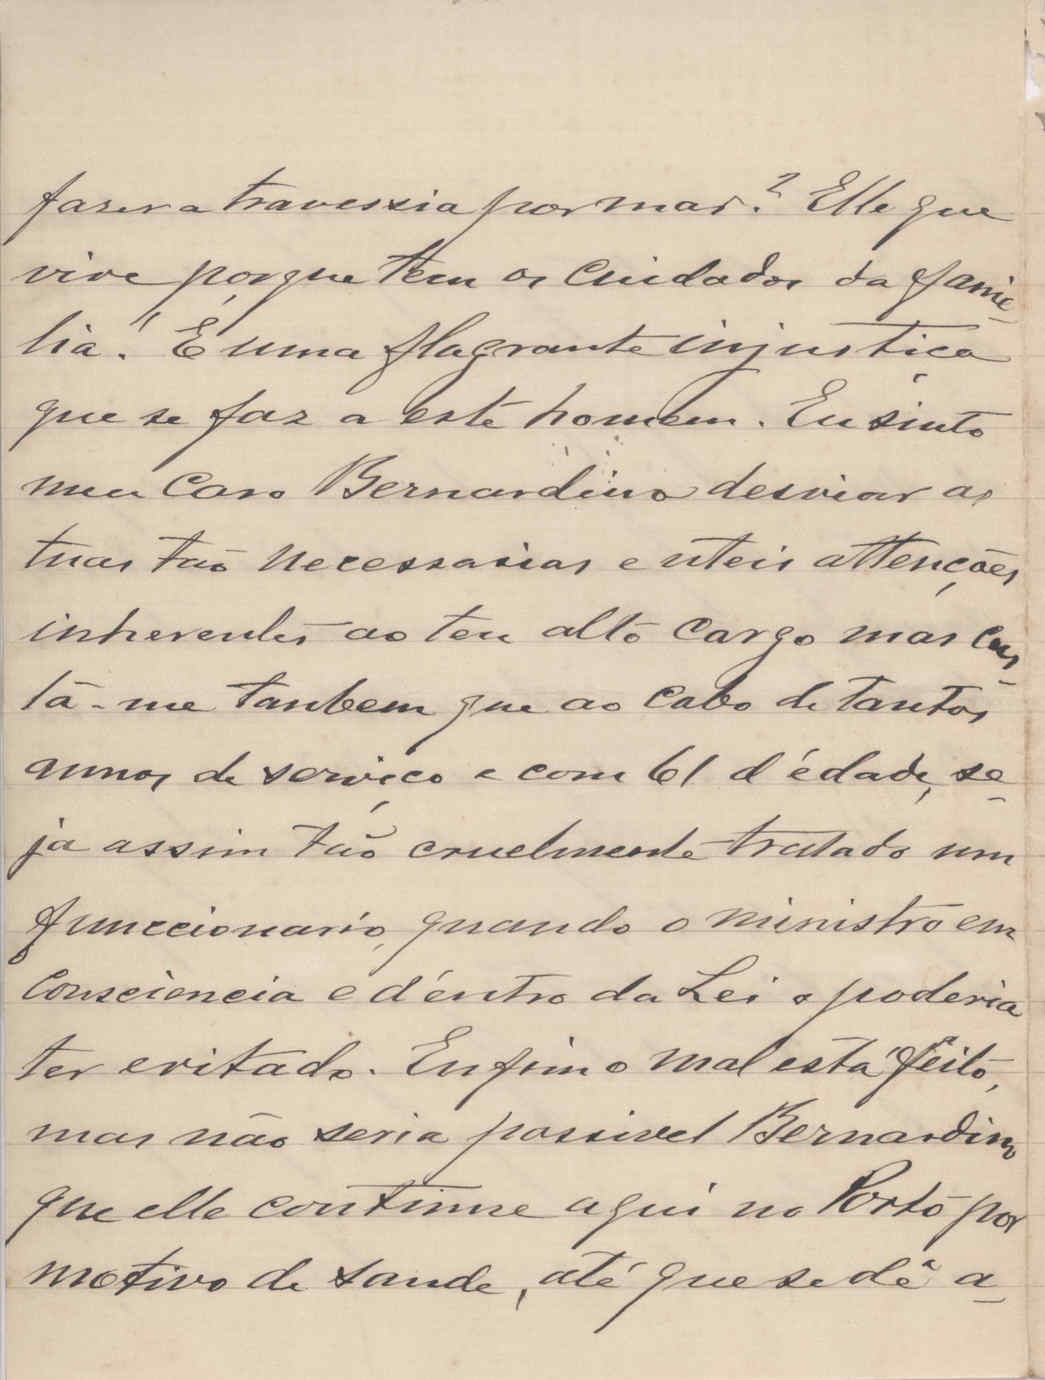 fazer a travessia por mar? Elle que
vive porque tem os cuidados da fami-
lia! É uma flagrante injustiça
que se faz a este homem. Eu sinto
meu caro Bernardino desviar as
tuas tão necessarias e uteis attenções
inherentes ao teu alto cargo mas cus-
ta-me tambem que ao cabo de tantos
annos de serviço e com 61 d'édade, se-
ja assim tão cruelmente tratado um
funccionario, quando o ministro em
consciencia e d'entro da Lei o poderia
ter evitado. Enfim o mal está feito,
mas não seria possivel Bernardino
que elle continue aqui no Porto por
motivo de saude, até que se dê a